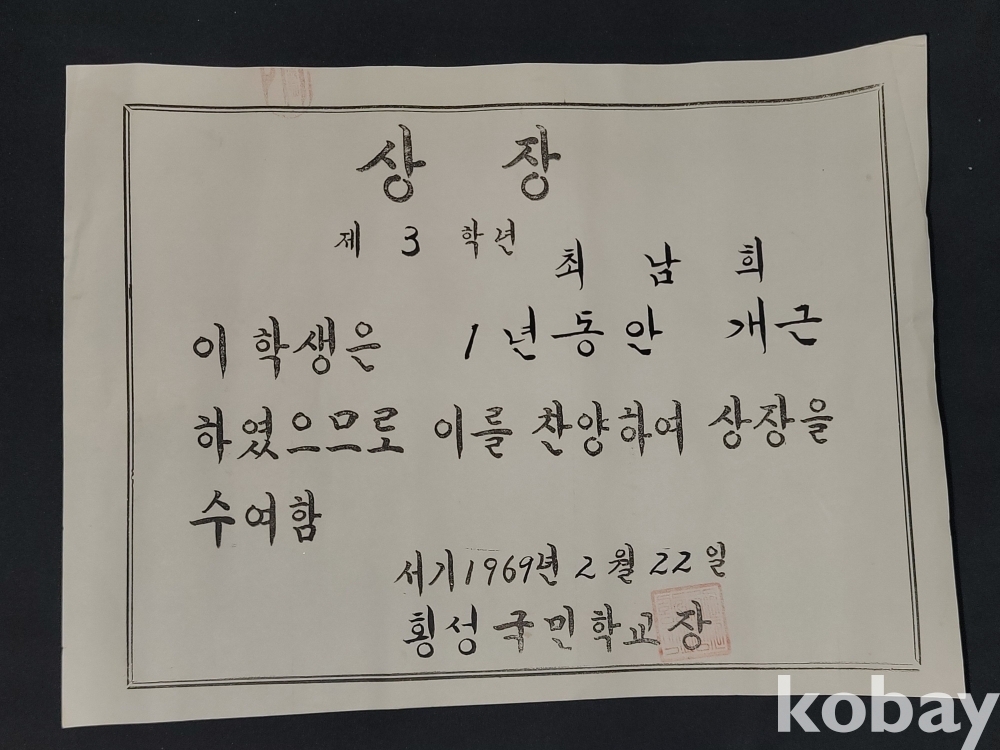 상 장
제 3 학년
최 남 희
이 학생은 1년동안 개근
하였으므로 이를 찬양하여 상장을
수여함
서기1969년 2월 22일
횡성국민학교장
kobay